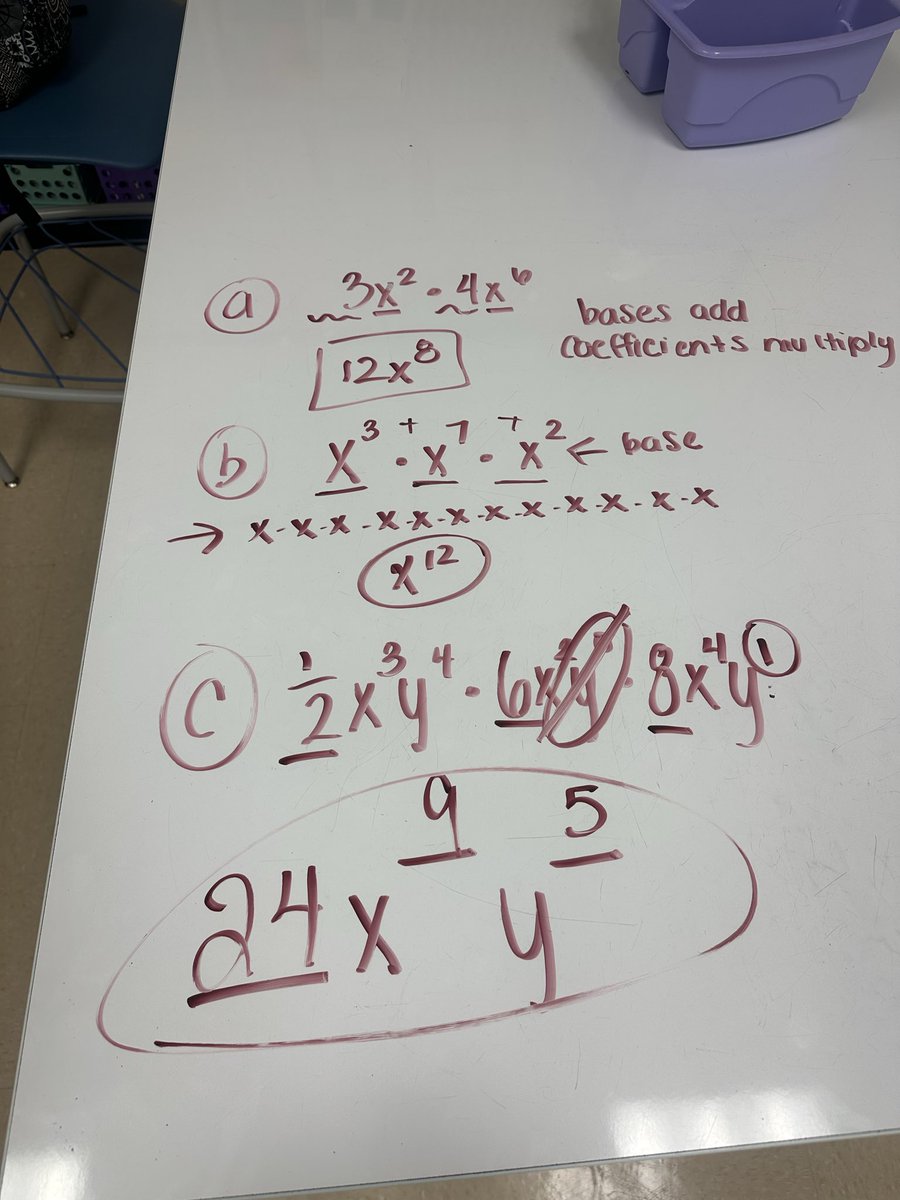 a 3x² · 4x⁶
bases add
coefficients multiply
12x⁸
b x³ + · x⁷ + · x² ← base
→ x·x·x·x·x·x·x·x·x·x·x·x
x¹²
c 1/2 x³y⁴ · 6x · 8x⁴y¹
24x⁹y⁵